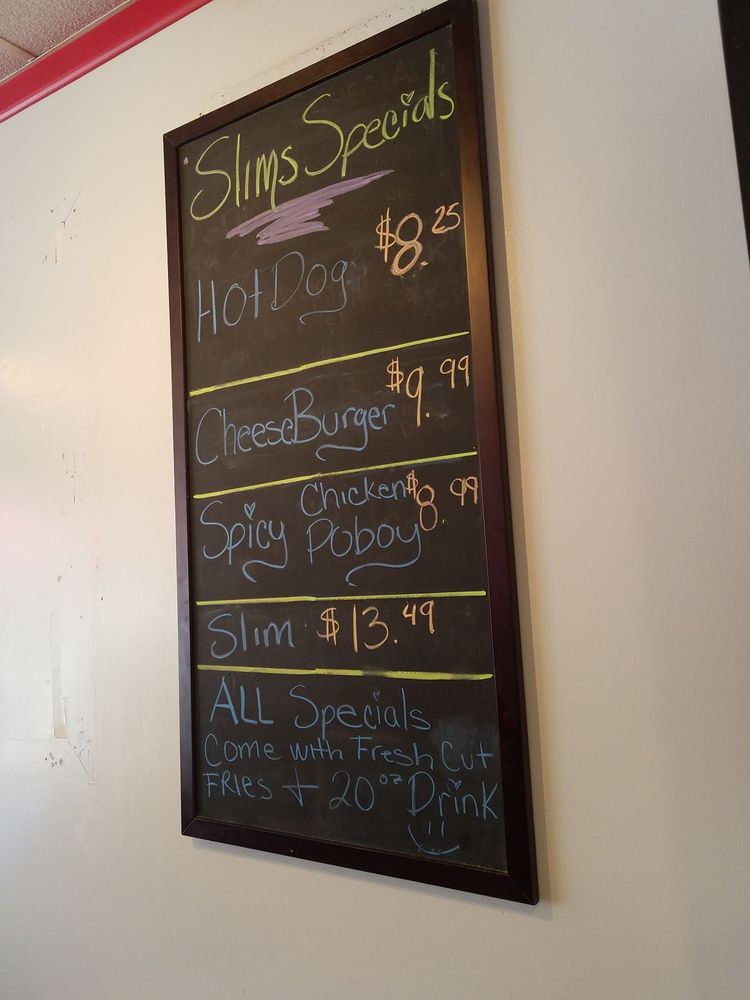 Slims Specials
Hot Dog $8.25
CheeseBurger $9.99
Spicy Chicken Poboy $8.99
Slim $13.49
ALL Specials
Come with Fresh Cut
FRIES + 20oz Drink